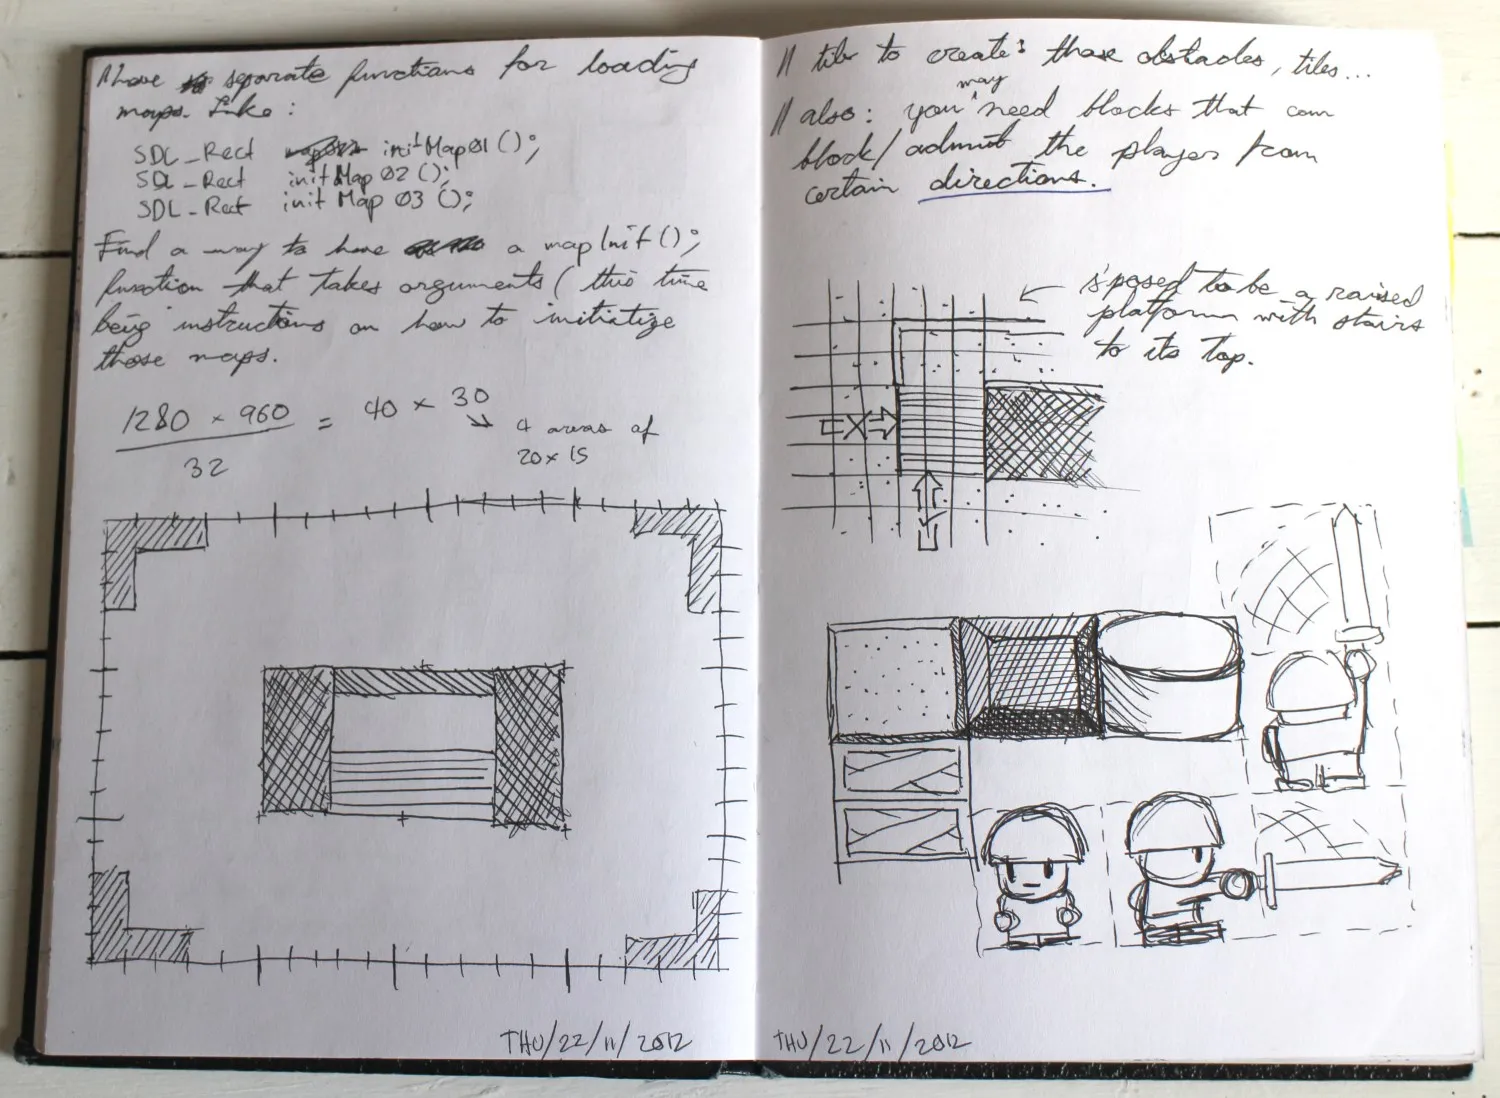 // have separate functions for loading
maps. Like:
SDL_Rect initMap01();
SDL_Rect initMap02();
SDL_Rect initMap03();
Find a way to have a mapInit();
function that takes arguments (this time
being instructions on how to initiatize
those maps.
1280 x 960 = 40 x 30
32
4 areas of
20x15
THU/22/11/2012
// tiles to create: those obstacles, tiles...
// also: you may need blocks that can
block/admit the player from
certain directions.
s'posed to be a raised
platform with stairs
to its top.
THU/22/11/2012